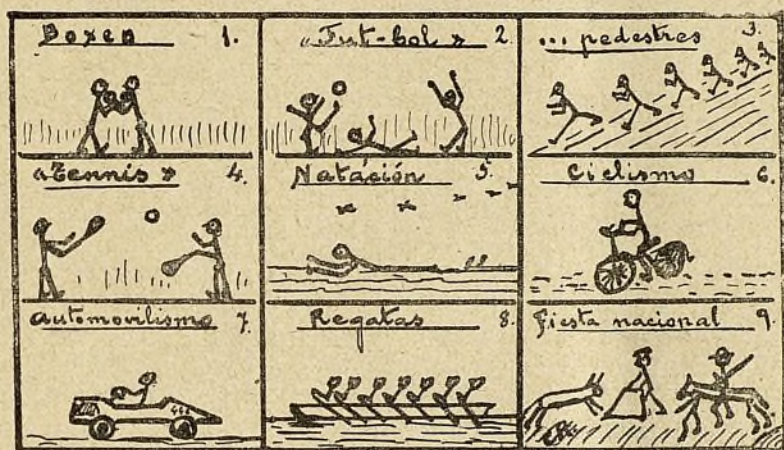 Boxeo 1.
«Fut-bol» 2.
... pedestres 3.
«Tennis» 4.
Natación 5.
Ciclismo 6.
Automovilismo 7.
Regatas 8.
Fiesta nacional 9.